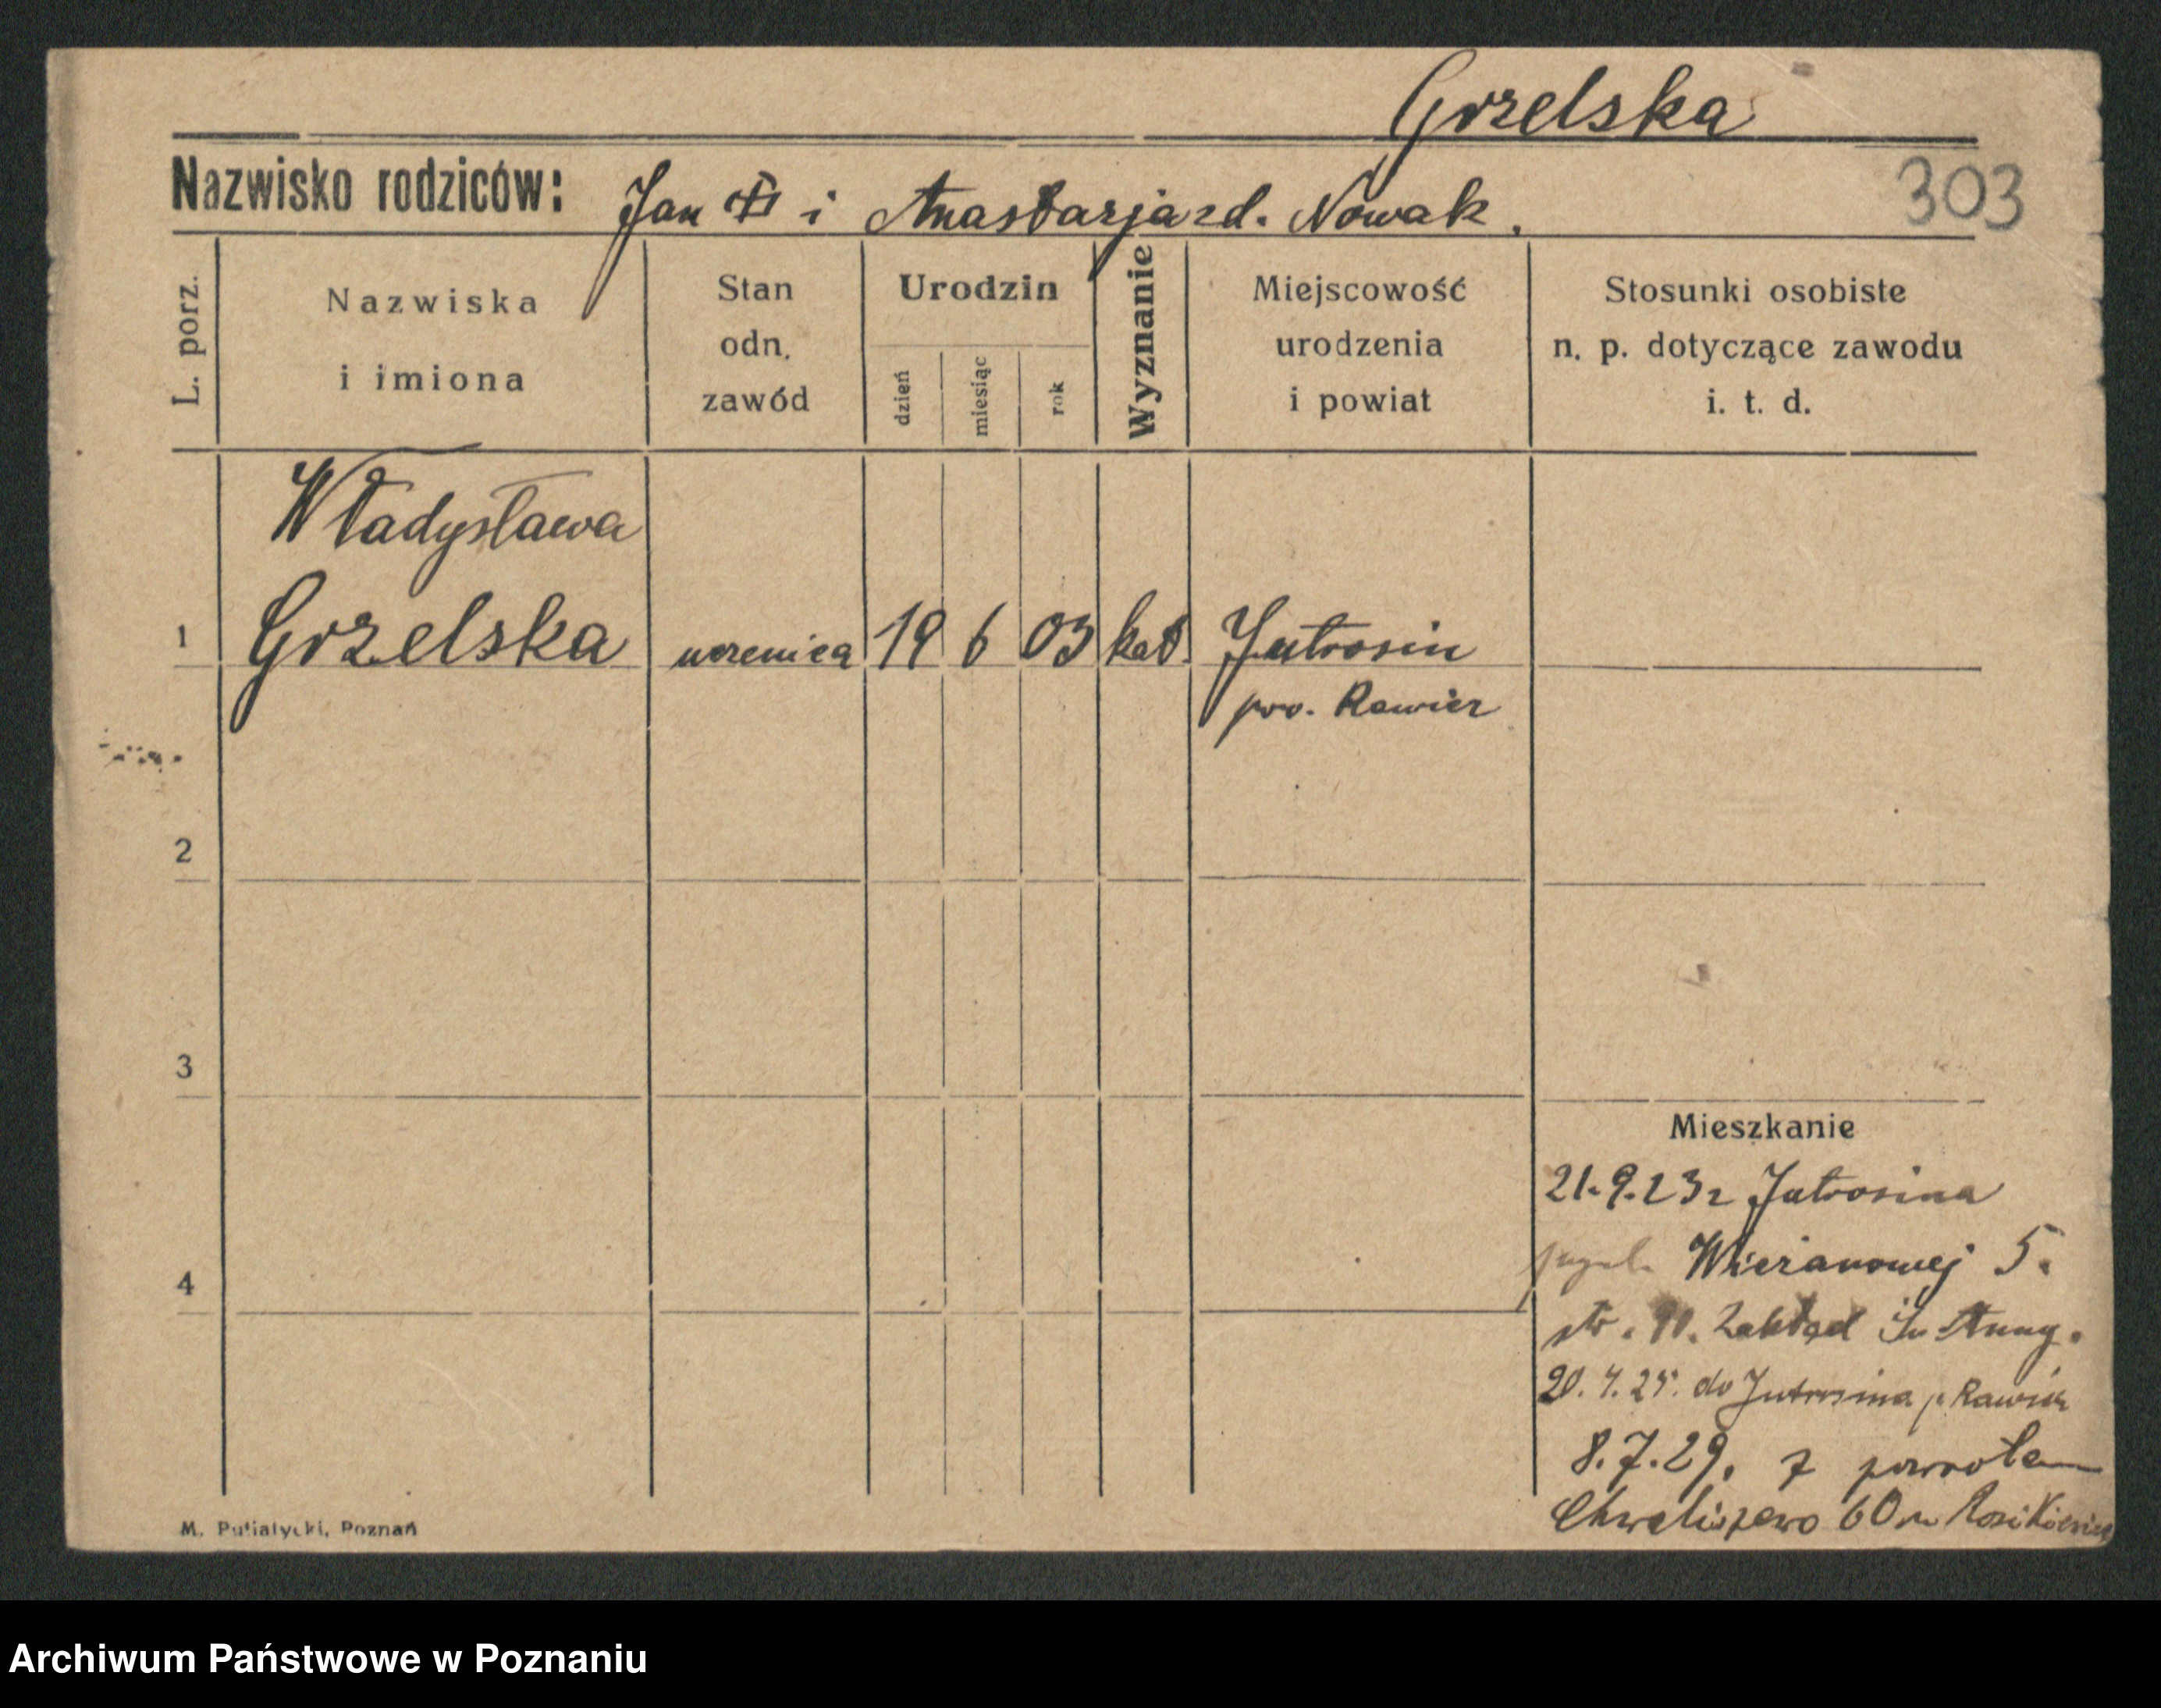 Grzelska
Nazwisko rodziców: Jan i Anastazja zd. Nowak.
303
L. porz.
Nazwiska
i imiona
Stan
odn.
zawód
Urodzin
dzień
miesiąc
rok
Wyznanie
Miejscowość
urodzenia
i powiat
Stosunki osobiste
n. p. dotyczące zawodu
i. t. d.
Władysława
1 Grzelska uczenica 19 6 03 kat. Jutrosin
pow. Rawicz
2
3
4
Mieszkanie
21.9.23 r Jutrosina
5.
str. Zakład św Anny.
20.4.25. do Jutrosina p. Rawicz
8.7.29. z powrotem
Chwaliszewo 60
M. Putiatycki, Poznań
Archiwum Państwowe w Poznaniu